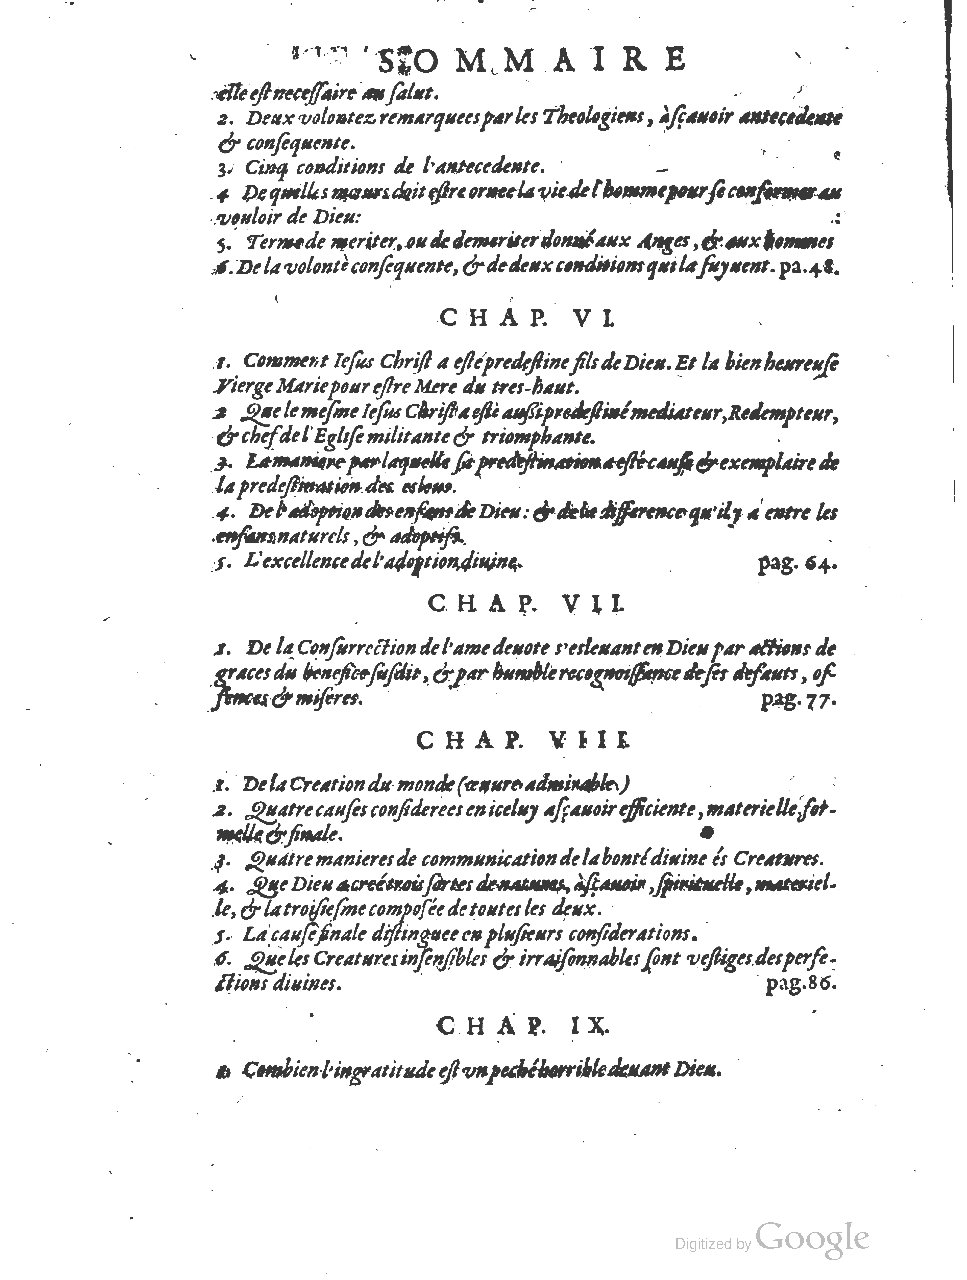 SOMMAIRE
elle eſt neceſſaire au ſalut.
2. Deux volontez remarquees par les Theologiens, àſçauoir antecedente
& conſequente.
3. Cinq conditions de l'antecedente.
4 De quelles mœurs doit eſtre ornee la vie de l'homme pour ſe conformer au
vouloir de Dieu:
5. Terme de meriter, ou de demeriter donné aux Anges, & aux hommes
6. De la volontè conſequente, & de deux conditions qui la ſuyuent. pa.48.
CHAP. VI.
1. Comment Ieſus Chriſt a eſté predeſtine fils de Dieu. Et la bien heureuſe
Vierge Marie pour eſtre Mere du tres-haut.
2 Que le meſme Ieſus Chriſt a eſtè auſſi predeſtiné mediateur, Redempteur,
& chef de l'Egliſe militante & triomphante.
3. La maniere par laquelle ſa predeſtination a eſté cauſe & exemplaire de
la predeſtination des esleus.
4. De l'adoption des enfans de Dieu: & de la difference qu'il y a entre les
enfans naturels, & adoptifs.
5. L'excellence de l'adoption diuine. pag. 64.
CHAP. VII.
1. De la Conſurrection de l'ame deuote s'esleuant en Dieu par actions de
graces du benefice ſuſdit, & par humble recognoiſſance de ſes defauts, of-
fences & miſeres. pag. 77.
CHAP. VIII.
1. De la Creation du monde (œuure admirable)
2. Quatre cauſes conſiderees en iceluy aſçauoir efficiente, materielle, for-
melle & finale.
3. Quatre manieres de communication de la bonté diuine és Creatures.
4. Que Dieu a creé trois ſortes de natures, àſçauoir, ſpirituelle, materiel-
le, & la troiſieſme compoſée de toutes les deux.
5. La cauſe finale diſtinguee en pluſieurs conſiderations.
6. Que les Creatures inſenſibles & irraiſonnables ſont veſtiges des perfe-
ctions diuines. pag.86.
CHAP. IX.
Combien l'ingratitude eſt vn peché horrible deuant Dieu.
Digitized by Google